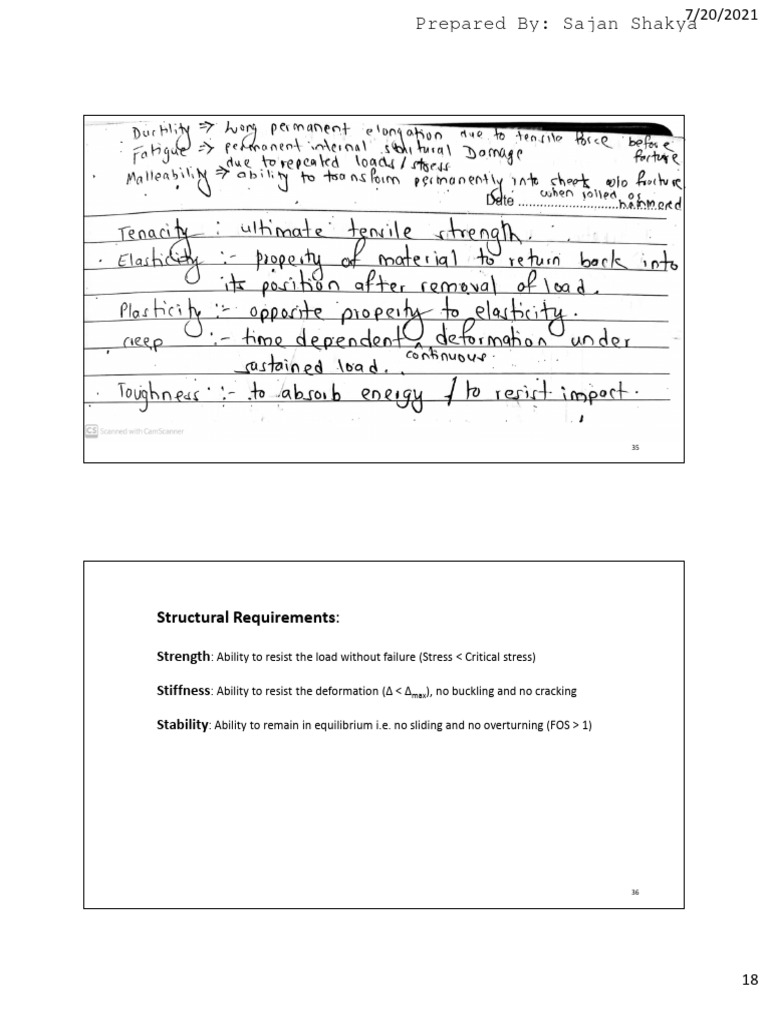 7/20/2021
Prepared By: Sajan Shakya
Ductility ⇒ long permanent elongation due to tensile force before
farture
Fatigue ⇒ permanent internal structural Damage
due to repeated loads / stress
Malleability ⇒ ability to transform permanently into sheets w/o fracture
when rolled or
Date ................................ hammered
Tenacity : ultimate tensile strength.
• Elasticity :- property of material to return back into
its position after removal of load.
Plasticity :- opposite property to elasticity.
creep :- time dependent ^ deformation under
continuous
sustained load.
• Toughness :- to absorb energy / to resist impact.
CS Scanned with CamScanner
35
Structural Requirements:
Strength: Ability to resist the load without failure (Stress < Critical stress)
Stiffness: Ability to resist the deformation (Δ < Δmax), no buckling and no cracking
Stability: Ability to remain in equilibrium i.e. no sliding and no overturning (FOS > 1)
36
18